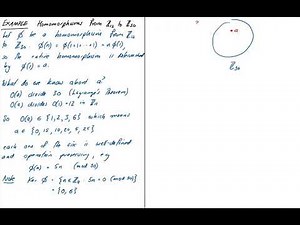 EXAMPLE Homomorphisms from Z₁₂ to Z₃₀
Let φ be a homomorphism from Z₁₂
to Z₃₀. φ(n) = φ(1+1+...+1) = nφ(1),
so the entire homomorphism is determined
by φ(1) = a.
What do we know about a?
O(a) divides 30 (Lagrange's Theorem)
O(a) divides O(1) = 12 in Z₁₂
So O(a) ∈ {1, 2, 3, 6} which means
a ∈ {0, 15, 10, 20, 5, 25}
each one of the six is well-defined
and operation preserving, e.g.
φ(n) = 5n (mod 30)
Note Ker φ = {n ∈ Z₁₂ 5n = 0 (mod 30)}
= {0, 6}
a
Z₃₀